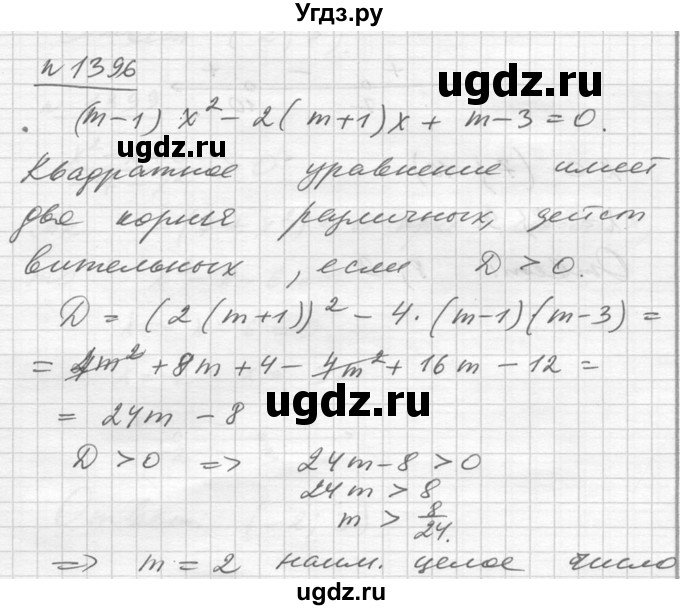 Угдз.ру
n 1396
ugdz.ru
(m-1) x² - 2(m+1)x + m-3=0.
ugdz.ru
Квадратное уравнение имеет
два корня различных, дейст
вительных, если D > 0.
D = (2(m+1))² - 4·(m-1)(m-3) =
= 4m² + 8m + 4 - 4m² + 16m - 12 =
= 24m - 8
ugdz.ru
D > 0 => 24m-8 > 0
24m > 8
m > 8/24.
=> m = 2 наим. целое число
ugdz.ru